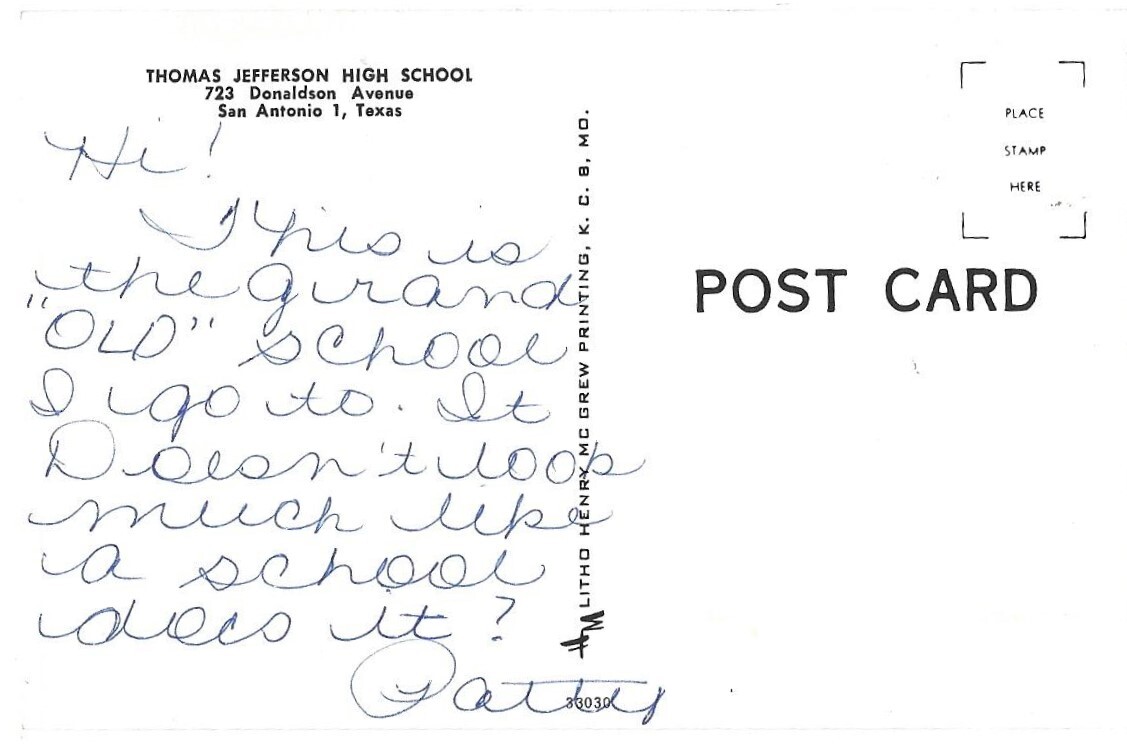 THOMAS JEFFERSON HIGH SCHOOL
723 Donaldson Avenue
San Antonio 1, Texas
Hi!
This is
the grand
"OLD" school
I go to. It
Doesn't look
much like
a school
does it?
Patty
LITHO HENRY MC GREW PRINTING, K. C. 8, MO.
33030
PLACE
STAMP
HERE
POST CARD